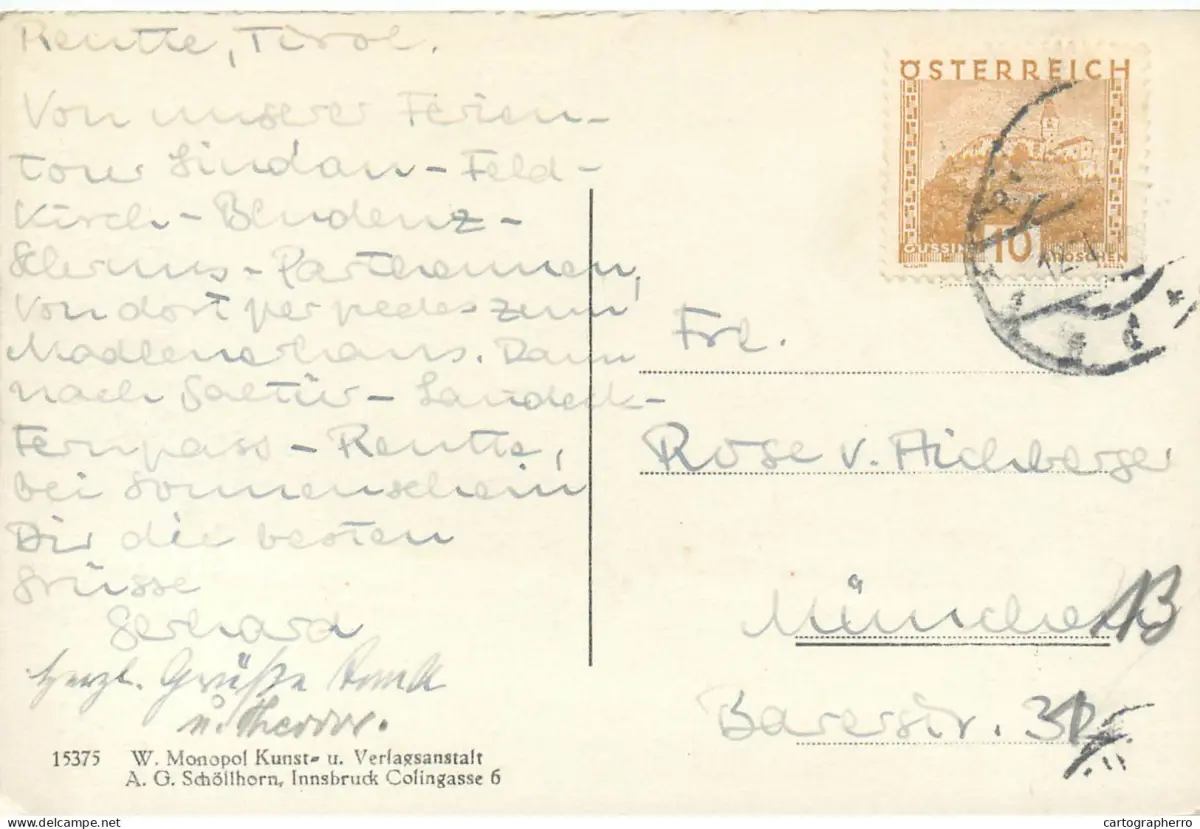 Reutte, Tirol.
Von unserer Ferien-
tour Lindau - Feld-
kirch - Bludenz -
Schruns - Parthennen,
von dort per pedes zum
Madlenerhaus. Dann
nach Galtür - Landeck -
Fernpass - Reutte,
bei Sonnenschein
Dir die besten
Grüsse
Gerhard
herzl. Grüße
u. Theodor.
15375 W. Monopol Kunst- u. Verlagsanstalt
A. G. Schöllhorn, Innsbruck Colingasse 6
ÖSTERREICH
GÜSSING 10 GROSCHEN
Frl.
Rose v. Aichberger
München
Barerstr.
cartographerro